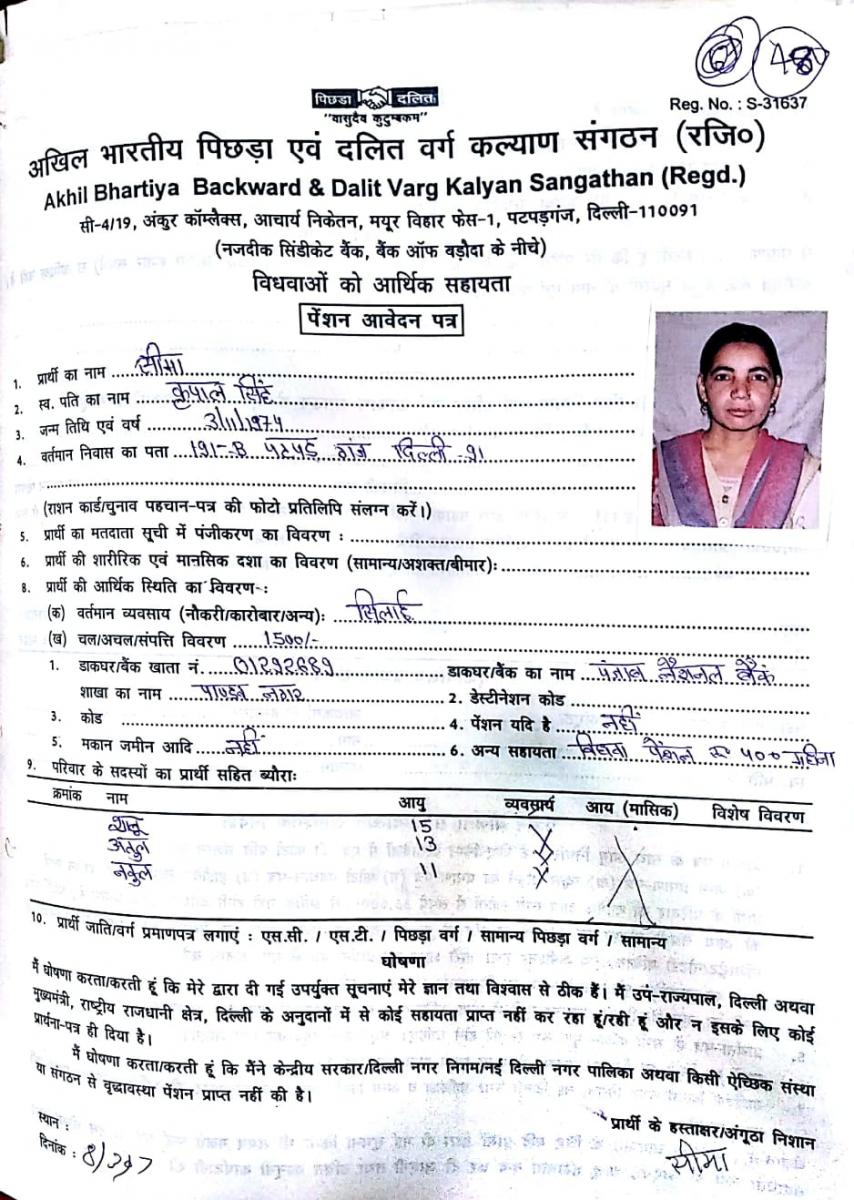 48
पिछड़ा दलित
"वासुदैव कुटुम्बकम"
Reg. No. : S-31637
अखिल भारतीय पिछड़ा एवं दलित वर्ग कल्याण संगठन (रजि०)
Akhil Bhartiya Backward & Dalit Varg Kalyan Sangathan (Regd.)
सी-4/19, अंकुर कॉम्लैक्स, आचार्य निकेतन, मयूर विहार फेस-1, पटपड़गंज, दिल्ली-110091
(नजदीक सिंडीकेट बैंक, बैंक ऑफ बड़ौदा के नीचे)
विधवाओं को आर्थिक सहायता
पेंशन आवेदन पत्र
1. प्रार्थी का नाम सीमा
2. स्व. पति का नाम कृपाल सिंह
3. जन्म तिथि एवं वर्ष 3/11/1974
4. वर्तमान निवास का पता 191-B पटपड़ गंज दिल्ली-91
(राशन कार्ड/चुनाव पहचान-पत्र की फोटो प्रतिलिपि संलग्न करें।)
5. प्रार्थी का मतदाता सूची में पंजीकरण का विवरण :
6. प्रार्थी की शारीरिक एवं मानसिक दशा का विवरण (सामान्य/अशक्त/बीमार):
8. प्रार्थी की आर्थिक स्थिति का विवरण-:
(क) वर्तमान व्यवसाय (नौकरी/कारोबार/अन्य): सिलाई
(ख) चल/अचल/संपत्ति विवरण 1500/-
1. डाकघर/बैंक खाता नं. 01292689 डाकघर/बैंक का नाम पंजाब नैशनल बैंक
शाखा का नाम पाण्डव नगर 2. डेस्टीनेशन कोड
3. कोड 4. पेंशन यदि है नहीं
5. मकान जमीन आदि नहीं 6. अन्य सहायता विधवा पेंशन रु ५०० महीना
9. परिवार के सदस्यों का प्रार्थी सहित ब्यौराः
क्रमांक नाम आयु व्यवसाय आय (मासिक) विशेष विवरण
15 X
अतुल 13 X
नकुल 11 X
10. प्रार्थी जाति/वर्ग प्रमाणपत्र लगाएं : एस.सी. / एस.टी. / पिछड़ा वर्ग / सामान्य पिछड़ा वर्ग / सामान्य
घोषणा
मैं घोषणा करता/करती हूं कि मेरे द्वारा दी गई उपर्युक्त सूचनाएं मेरे ज्ञान तथा विश्वास से ठीक हैं। मैं उप-राज्यपाल, दिल्ली अथवा
मुख्यमंत्री, राष्ट्रीय राजधानी क्षेत्र, दिल्ली के अनुदानों में से कोई सहायता प्राप्त नहीं कर रहा हूं/रही हूं और न इसके लिए कोई
प्रार्थना-पत्र ही दिया है।
मैं घोषणा करता/करती हूं कि मैंने केन्द्रीय सरकार/दिल्ली नगर निगम/नई दिल्ली नगर पालिका अथवा किसी ऐच्छिक संस्था
या संगठन से वृद्धावस्था पेंशन प्राप्त नहीं की है।
प्रार्थी के हस्ताक्षर/अंगूठा निशान
स्थान :
दिनांक :
सीमा